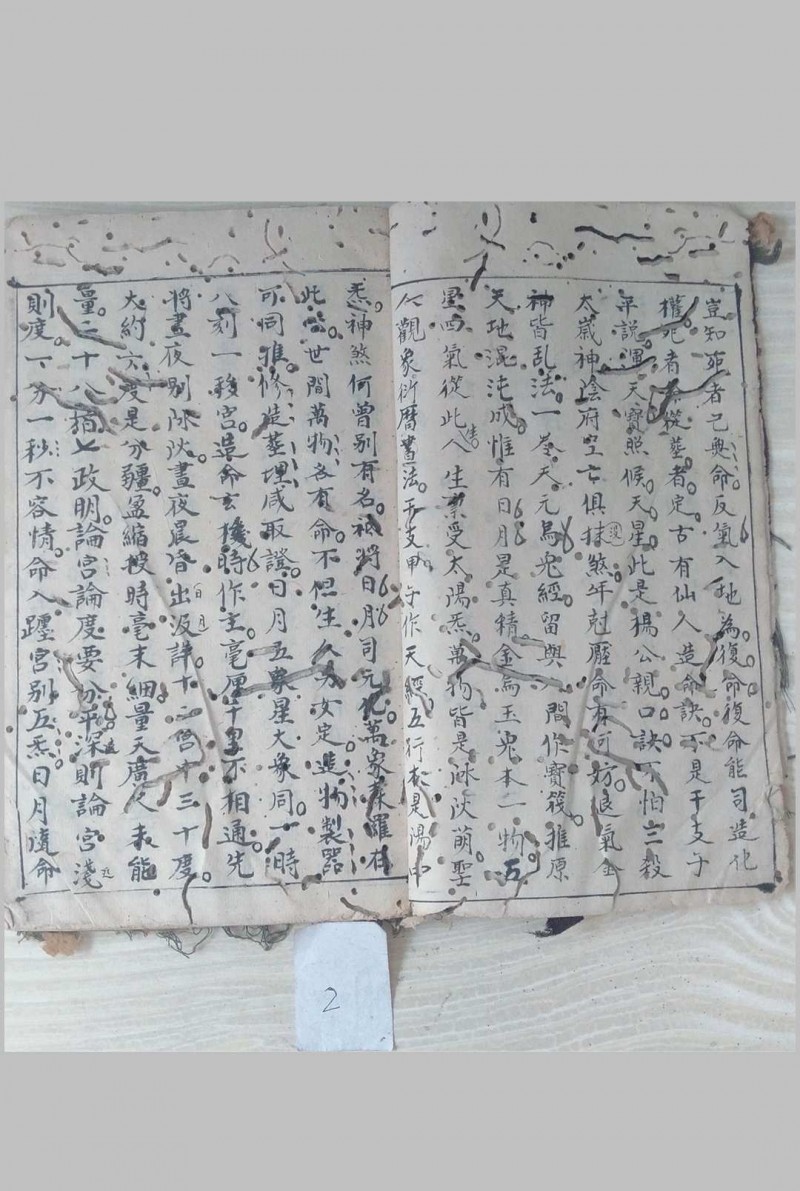 豈知死者已無命反氣入地為復命復命能司造化
權死者命從葬者定古有仙人造命訣不是干支子
平說渾天寶照候天星此是楊公親口訣不怕三殺
太歲神陰府空亡俱抹煞年尅壓命有何妨退氣金
神皆乱法一卷天元烏兔經留與人間作寶筏推原
天地混沌成惟有日月是真精金烏玉兔本一物五
星四氣從此生人生禀受太陽炁萬物皆是冰泮萌聖
人觀象衍曆書法干支甲子作天經五行本是陽中
炁神煞何曾別有名祗將日月司元化萬象森羅在
此世間萬物各有命不但生人男女定造物製器
可同推修造葬埋咸取證日月五象星大象同一時
八刻一移宮造命玄機時作主毫厘千里不相通先
將晝夜別陰陽晝夜晨昏出沒詳十二宮中三十度
大約六度是分疆盈縮授時毫末細量天廣尺未能
量二十八宿七政明論宮論度要分平深則論宮淺
則度一分一秒不容情命入躔宮別五炁日月隨命
2